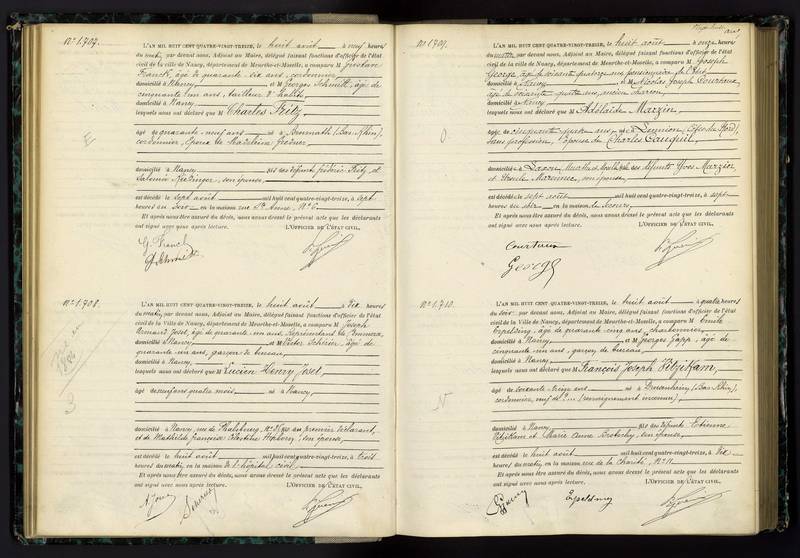 N° 1.707.
L'AN MIL HUIT CENT QUATRE-VINGT-TREIZE, le huit août à neuf heures
du matin, par devant nous, Adjoint au Maire, délégué faisant fonctions d'officier de l'état
civil de la ville de Nancy, département de Meurthe-et-Moselle, a comparu M Gustave
Franck, âgé de quarante-dix ans, cordonnier
domicilié à et M Georges Schmitt, âgé de
cinquante un ans, tailleur d'habits,
domicilié à Nancy
lesquels nous ont déclaré que M Charles Fritz,
E
âgé de quarante-neuf ans né à Brumath (Bas-Rhin),
cordonnier, époux de Madeleine
domicilié à Nancy fils des défunts Frédéric Fritz et
Salomé son épouse
est décédé le sept août mil huit cent quatre-vingt-treize, à sept
heures du soir en la maison rue St Anne, N° 6
Et après nous être assuré du décès, nous avons dressé le présent acte que les déclarants
ont signé avec nous après lecture. L'OFFICIER DE L'ÉTAT CIVIL,
G. Franck
N° 1.708.
L'AN MIL HUIT CENT QUATRE-VINGT-TREIZE, le huit août à dix heures
du matin, par devant nous, Adjoint au Maire, délégué faisant fonctions d'officier de l'état
civil de la Ville de Nancy, département de Meurthe-et-Moselle, a comparu M Joseph
âgé de quarante un ans, Représentant de Commerce,
domicilié à Nancy et M âgé de
quarante un ans, garçon de bureau,
domicilié à Nancy,
lesquels nous ont déclaré que M Lucien Henry
3
âgé de neuf ans quatre mois né à Nancy,
domicilié à Nancy, rue de Phalsbourg, fils du premier déclarant,
et de Mathilde Françoise son épouse
est décédé le huit août mil huit cent quatre-vingt-treize, à trois
heures du matin, en la maison de l'hôpital civil,
Et après nous être assuré du décès, nous avons dressé le présent acte que les déclarants
ont signé avec nous après lecture. L'OFFICIER DE L'ÉTAT CIVIL,
N° 1709.
L'AN MIL HUIT CENT QUATRE-VINGT-TREIZE, le huit août à onze heures
du matin, par devant nous, Adjoint au Maire, délégué faisant fonctions d'officier de l'état
civil de la ville de Nancy, département de Meurthe-et-Moselle, a comparu M Joseph
George, âgé de soixante quatorze ans, pensionnaire de l'État
domicilié à Nancy et M Nicolas Joseph Courteux,
âgé de soixante quatre ans,
domicilié à Nancy
lesquels nous ont déclaré que M Adélaïde Marzin,
O
âgée de cinquante ans née à Lannion (Côtes du Nord),
sans profession, épouse de Charles
domiciliée à fille des défunts Yves Marzin
et Ursule son épouse
est décédée le sept août mil huit cent quatre-vingt-treize, à sept
heures du soir en la maison de secours,
Et après nous être assuré du décès, nous avons dressé le présent acte que les déclarants
ont signé avec nous après lecture. L'OFFICIER DE L'ÉTAT CIVIL,
Courteux
George
N° 1.710.
L'AN MIL HUIT CENT QUATRE-VINGT-TREIZE, le huit août à quatre heures
du soir par devant nous, Adjoint au Maire, délégué faisant fonctions d'officier de l'état
civil de la Ville de Nancy, département de Meurthe-et-Moselle, a comparu M Emile
Epelding, âgé de quarante-cinq ans, charbonnier,
domicilié à Nancy, et M Georges Gapp, âgé de
cinquante un ans, garçon de bureau
domicilié à Nancy,
lesquels nous ont déclaré que M François Joseph Fitzikam,
N
âgé de soixante-treize ans né à (Bas-Rhin),
cordonnier, veuf de ? (renseignement inconnu),
domicilié à Nancy, fils des défunts Etienne
Fitzikam et Marie Anne son épouse,
est décédé le huit août mil huit cent quatre-vingt-treize, à dix
heures du matin, en la maison rue de la Charité, N° 11.
Et après nous être assuré du décès, nous avons dressé le présent acte que les déclarants
ont signé avec nous après lecture. L'OFFICIER DE L'ÉTAT CIVIL,
Epelding